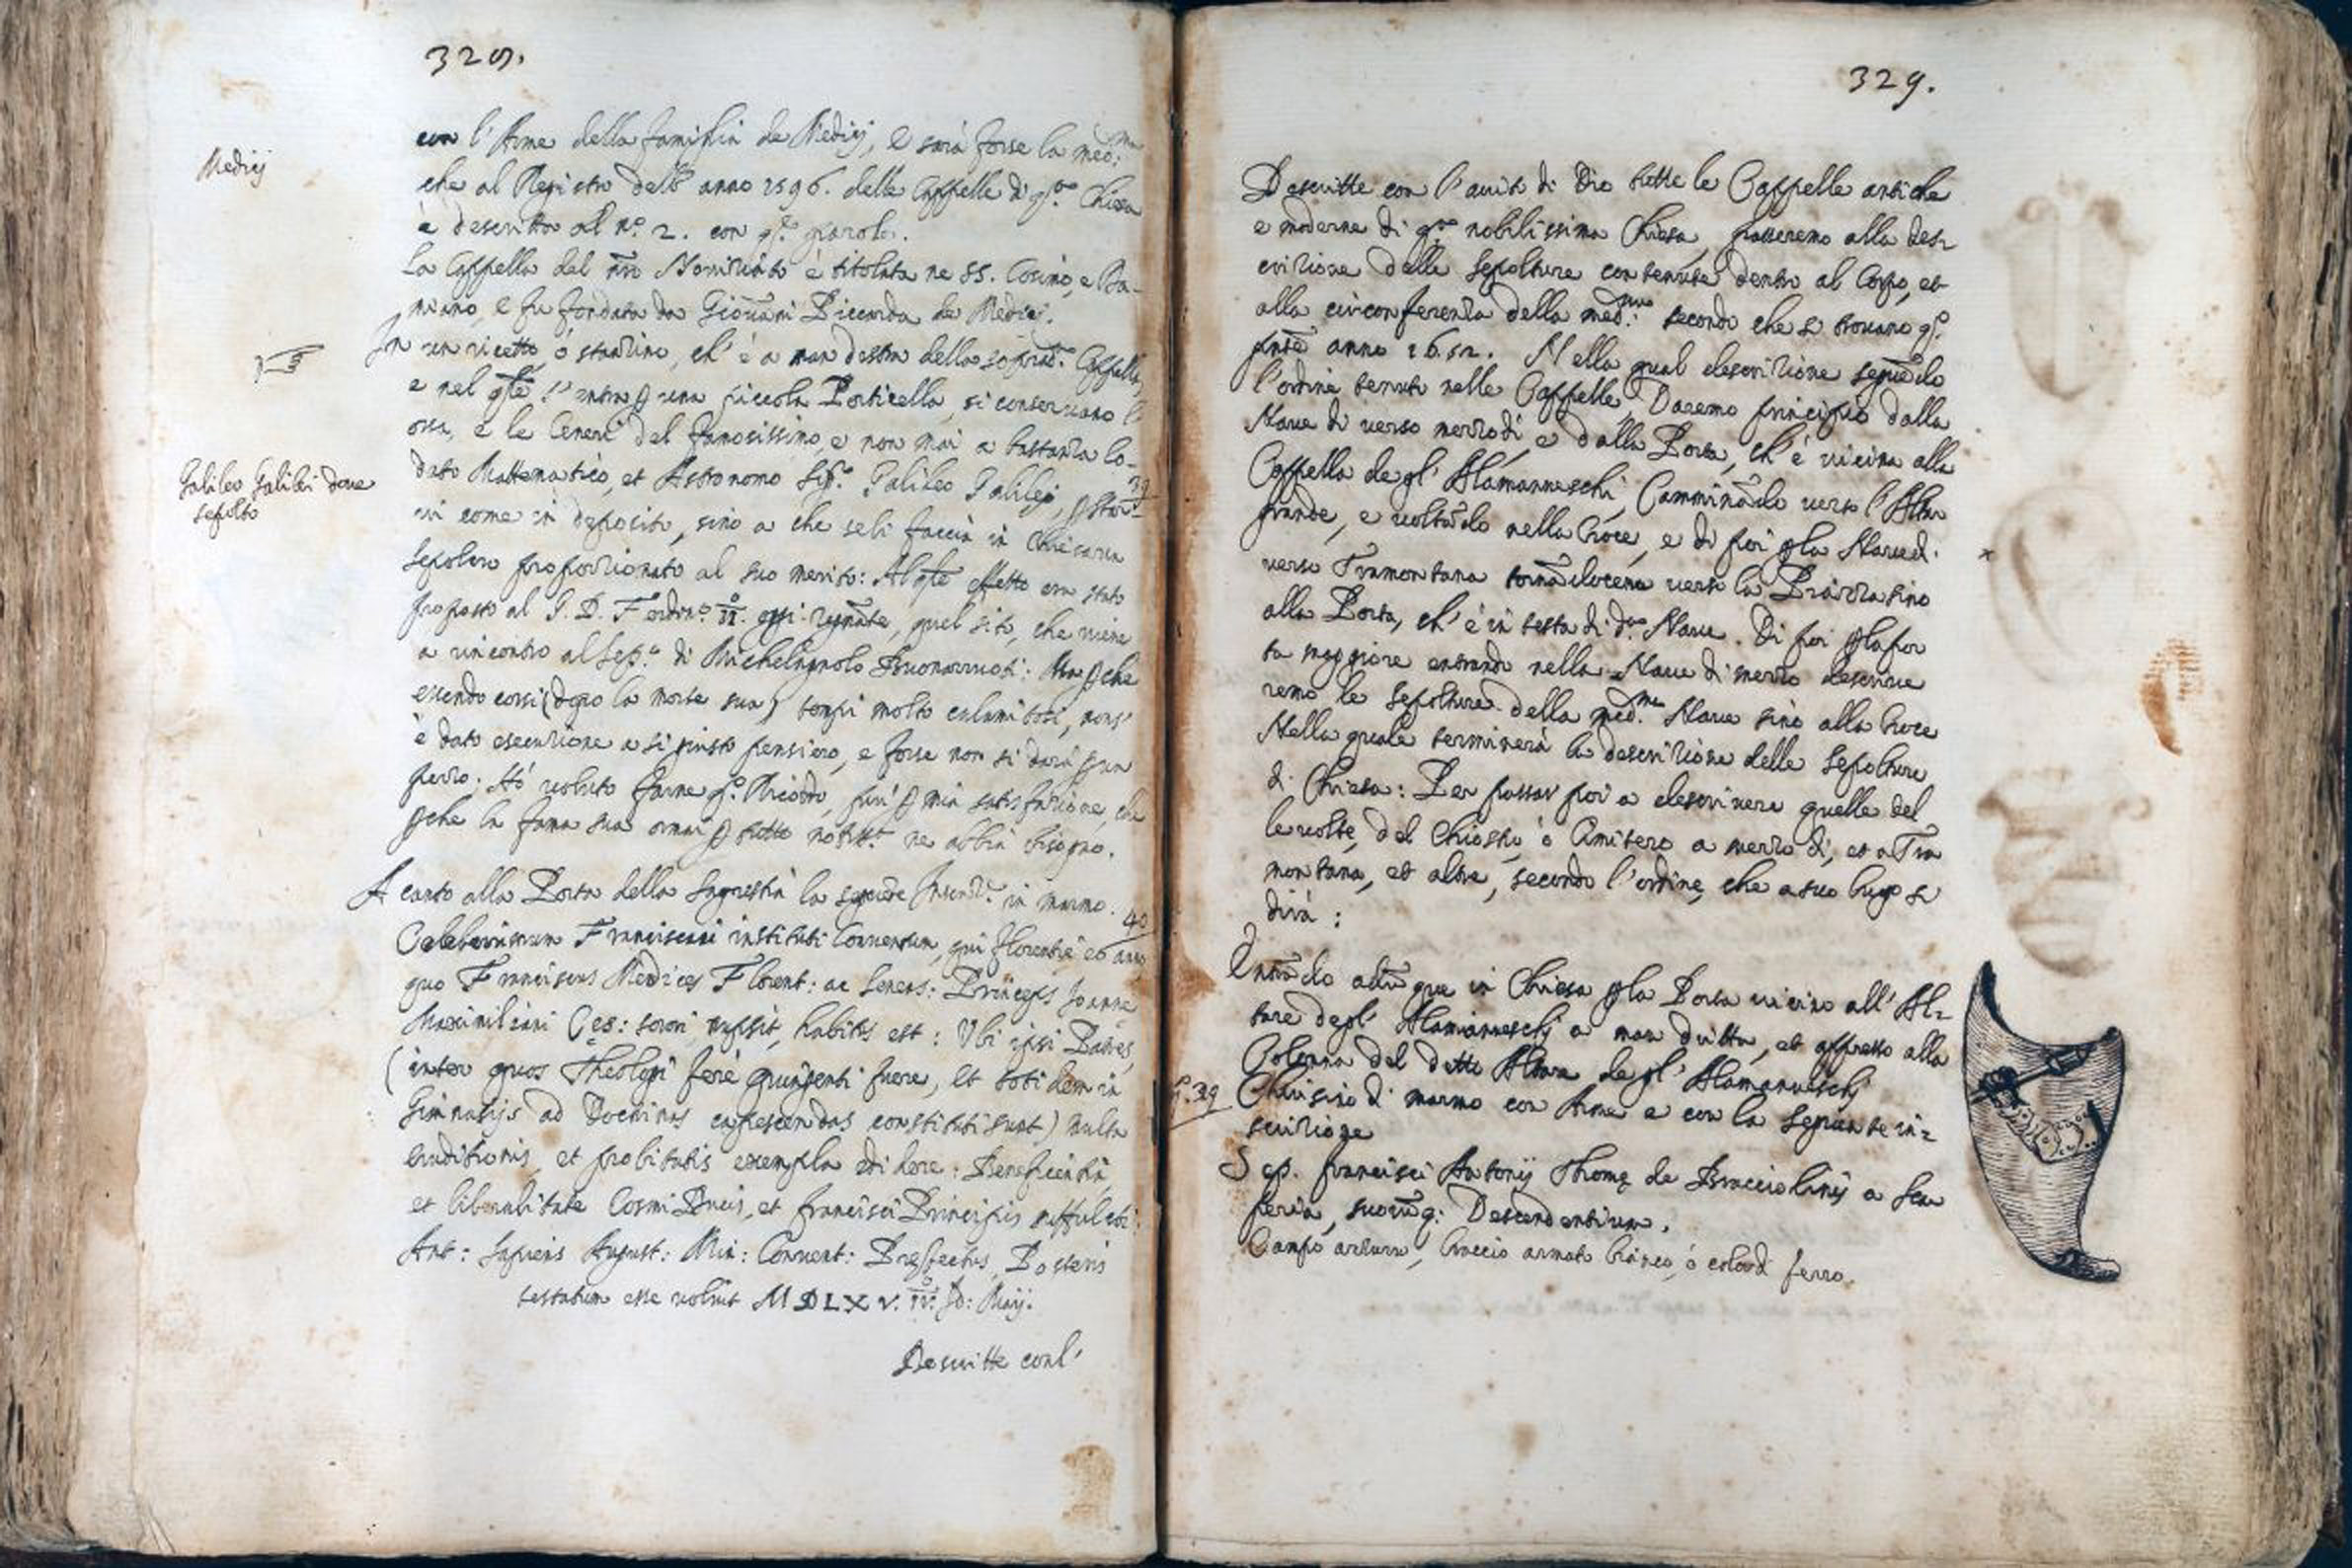 328.
Medicj
con l'Arme della famiglia de Medicj, e sarà forse la med:ma
che al Registro dello anno 1596. delle Cappelle di q.ta Chiesa
è descritta al n.o 2. con q.te parole.
La Cappella del nro Noviziato è titolata ne SS. Cosimo, e Da-
miano, e fu fondata da Giovani Bicci de Medici.
In un ricetto, ò stanzino, ch'è a man destra della soprad.a Cappella,
e nel qle s'entra p una piccola Porticella, si conservano l'
ossa, e le Ceneri del famosissimo, e non mai a bastanza lo-
Galileo Galilei dove
sepolto
dato Mattematico, et Astronomo Sig.r Galileo Galilej, p star
39
ivi come in deposito, sino a che seli faccia in Chiesa un
sepolcro proporzionato al suo merito: Al qle effetto era stato
proposto al G. D. Ferdin.o II. oggi regnate, quel sito, che viene
a rincontro al Sep.o di Michelagnolo Buonarruoti: Ma pche
essendo corsi (dopo la morte sua) tempi molto calamitosi, non s'
è dato esecuzione a sì giusto pensiero, e forse non si darà p un
pezzo; Hò voluto farne q.o Ricordo, più p mia satisfazione, che
pche la fama sua ormai p tutto notiss.a ne abbia bisogno.
A canto alla Porta della Sagrestia la seguete Inscriz.e in marmo.
40
Celeberrimum Franciscani instituti Conventum, qui Florentie eo anno
quo Franciscus Medices Florent: ac Senens: Princeps Joanne
Maximiliani Ces: sorori nupsit, habitus est: Ubi ipsi Patres,
(inter quos Theologi fere quingenti fuere, et toti dem in
Gimnasijs ad Doctrinas capescendas constituti sunt) multa
eruditionis, et probitatis exempla edidere: Beneficentia,
et liberalitate Cosmi Ducis, et Francisci Principis suffulcti:
Ant: Sapiens August: Min: Convent: Prefectus, Posteris
testatum esse voluit MDLXV. IV. Id: Maij.
Descritte conl'
329.
Descritte con l'aiuto di Dio tutte le Cappelle antiche
e moderne di q.ta nobilissima Chiesa, passeremo alla des-
crizione delle sepolture contenute dentro al Corpo, et
alla circonferenza della med.ma secondo che si trovano q.o
pnte anno 1652. Nella qual descrizione seguedo
l'ordine tenuto nelle Cappelle, Daremo principio dalla
Nave di verso mezzodì, e dalla Porta, ch'è vicina alla
Cappella de gl'Alamanneschi, Camminado verso l'Altar
grande, e voltado nella Croce, e di poi p la Nave di
verso Tramontana tornadocene verso la Piazza sino
alla Porta, ch'è in testa di d.a Nave. Di poi p la por
ta maggiore entrando nella Nave di mezzo descrive
remo le sepolture della med.ma Nave sino alla Croce
Nella quale terminerà la descrizione delle sepolture
di Chiesa: Per passar poi a descrivere quelle del
le volte, del Chiostro, ò Cimitero a mezzo dì, et a Tra
montana, et altre, secondo l'ordine, che a suo luogo si
dirà:
Entrado aduque in Chiesa p la Porta vicino all'Al-
tare degl'Alamanneschj a man dritta, et appresso alla
Colonna del detto Altare de gl'Alamanneschj
Chiusino di marmo con Arme e con la seguente in-
scrizione
Sep. Francisci Antonij Thome de Bracciolinj a Scar
peria, suorumq: Descendentium.
Campo azzurro, braccio armato bianco, ò color di ferro.